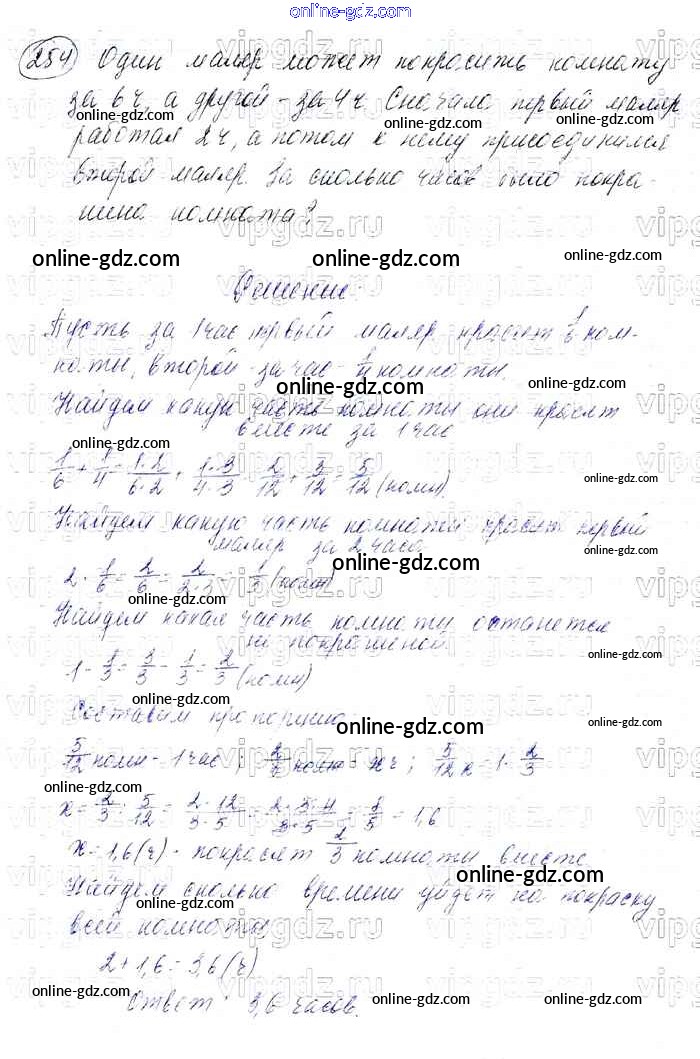 online-gdz.com
254 Один маляр может покрасить комнату
за 6 ч, а другой - за 4 ч. Сначала первый маляр
работал 2 ч, а потом к нему присоединился
второй маляр. За сколько часов было покра-
шена комната?
online-gdz.com online-gdz.com online-gdz.com
Решение
Пусть за 1 час первый маляр красит 1/6 ком-
наты, второй за час - 1/4 комнаты.
online-gdz.com
Найдем какую часть комнаты они красят
вместе за 1 час
online-gdz.com
1/6 + 1/4 = 1·2/6·2 + 1·3/4·3 = 2/12 + 3/12 = 5/12 (комн)
online-gdz.com
Найдем какую часть комнаты красит первый
маляр за 2 часа
online-gdz.com online-gdz.com
2 · 1/6 = 2/6 = 2/2·3 = 1/3 (комн)
online-gdz.com
Найдем какая часть комнаты останется
не покрашеной.
online-gdz.com
1 - 1/3 = 3/3 - 1/3 = 2/3 (комн)
online-gdz.com
Составим пропорцию
online-gdz.com online-gdz.com
5/12 комн - 1 час ; 2/3 комн - x ч ; 5/12 x = 1 · 2/3
online-gdz.com
x = 2/3 : 5/12 = 2·12/3·5 = 2·3·4/3·5 = 8/5 = 1,6
x = 1,6 (ч) - покрасят 2/3 комнаты вместе
online-gdz.com online-gdz.com
Найдем сколько времени уйдет на покраску
всей комнаты
online-gdz.com
2 + 1,6 = 3,6 (ч)
online-gdz.com online-gdz.com online-gdz.com
Ответ: 3,6 часов.